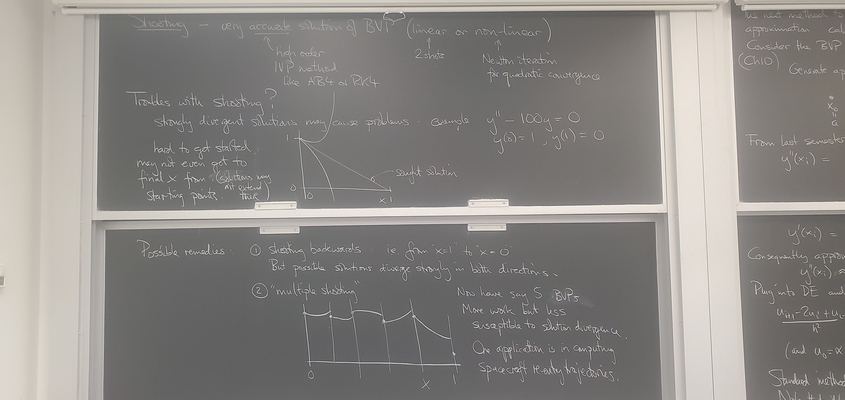 Shooting - very accurate solution of BVP (linear or non-linear)
high order
IVP method
like AB4 or RK4
2 shots
Newton iteration
for quadratic convergence
Troubles with shooting?
strongly divergent solutions may cause problems. example
y'' - 100y = 0
y(0) = 1, y(1) = 0
hard to get started
may not even get to
final x from (solutions may
not extend
starting points. there)
1
0
0
x 1
sought solution
Possible remedies:
① shooting backwards i.e. from "x=1" to "x=0"
But possible solutions diverge strongly in both directions.
② "multiple shooting"
0
x
1
Now have say 5 BVPs
More work but less
susceptible to solution divergence.
One application is in computing
spacecraft re-entry trajectories.
the next method
approximation
Consider the BVP
(Ch10)
Generate
x₀
a
From last semester
y''(xᵢ) =
y'(xᵢ) =
Consequently
y'(xᵢ) =
Plug into DE and
uᵢ₊₁ - 2uᵢ + uᵢ₋
h²
(and u₀ = α
Standard method